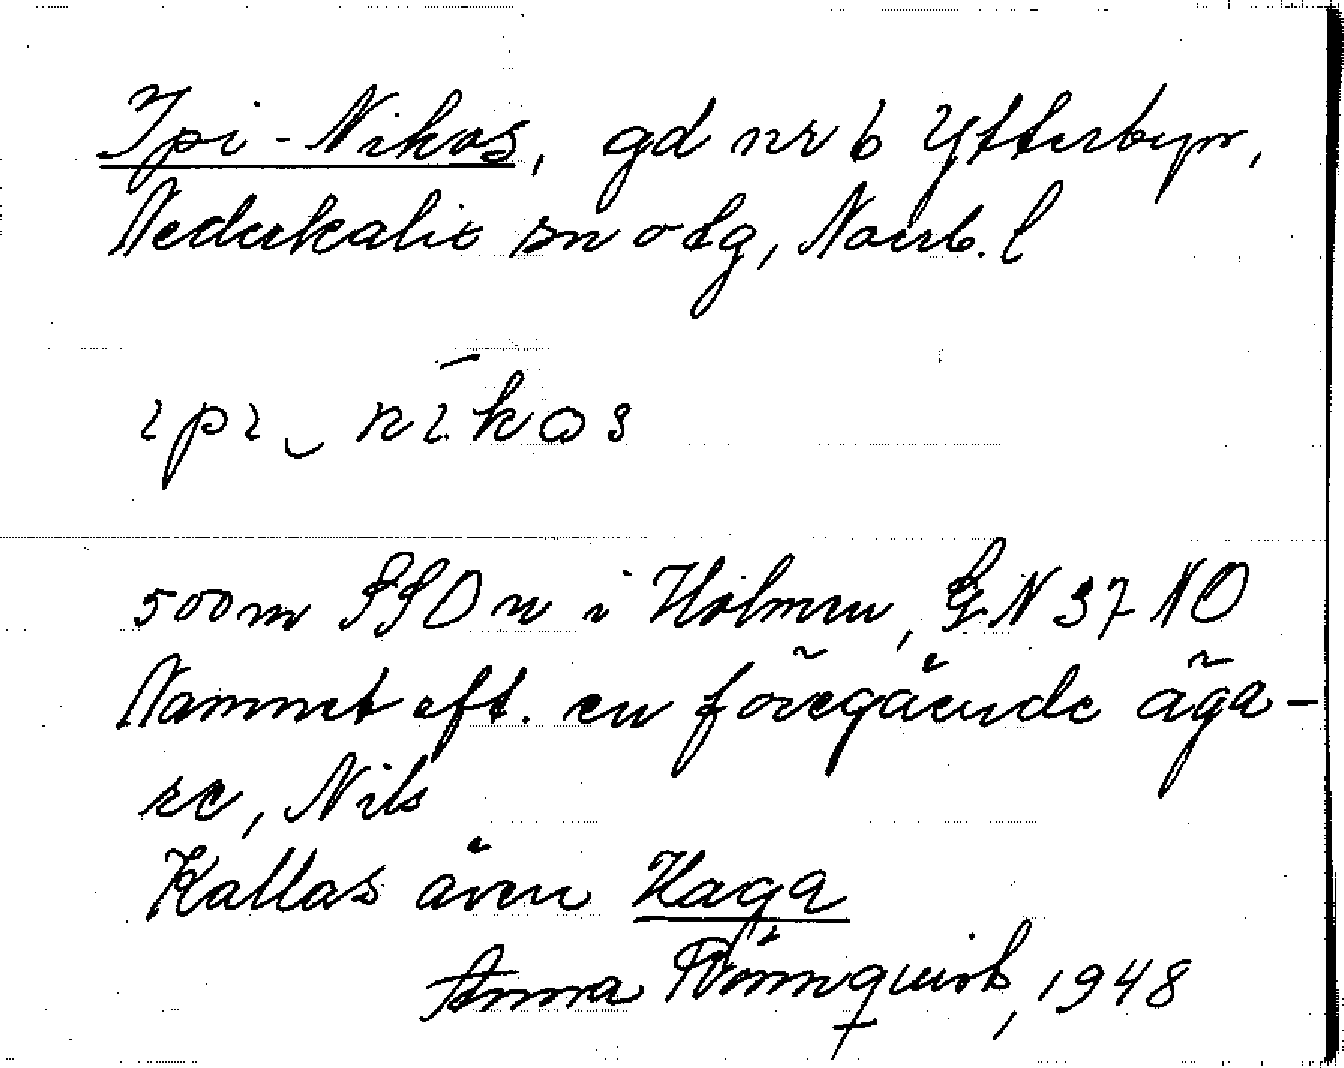 Ipi-Nikos, gd nr 6 Ytterbyn,
Nederkalix sn o tg, Norrb. l
ipi nīkos
500m SSO n i Holmen, GN 37 NO
Namnet eft. en föregående äga-
re, Nils
Kallas även Haga
Anna Rönnquist, 1948